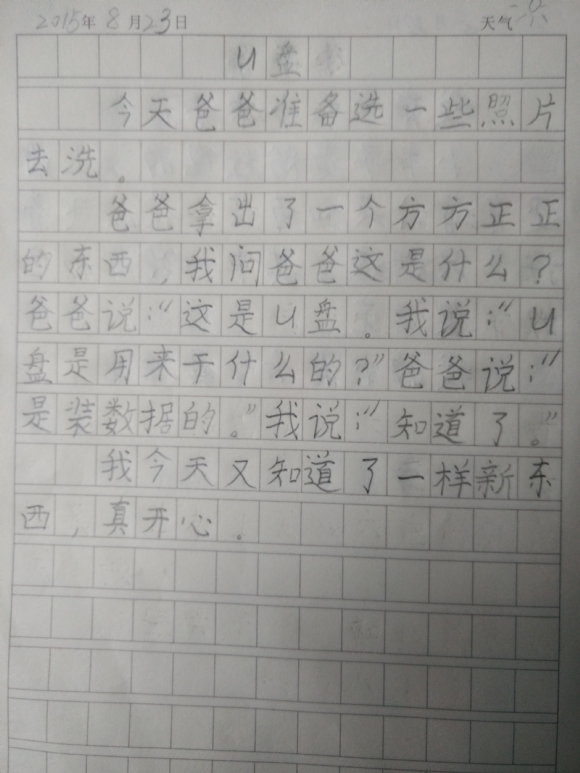 2015年8月23日 天气
U盘
今天爸爸准备选一些照片
去洗。
爸爸拿出了一个方方正正
的东西,我问爸爸这是什么?
爸爸说:“这是U盘。我说:“U
盘是用来干什么的?”爸爸说:“
是装数据的。”我说:“知道了。”
我今天又知道了一样新东
西,真开心。